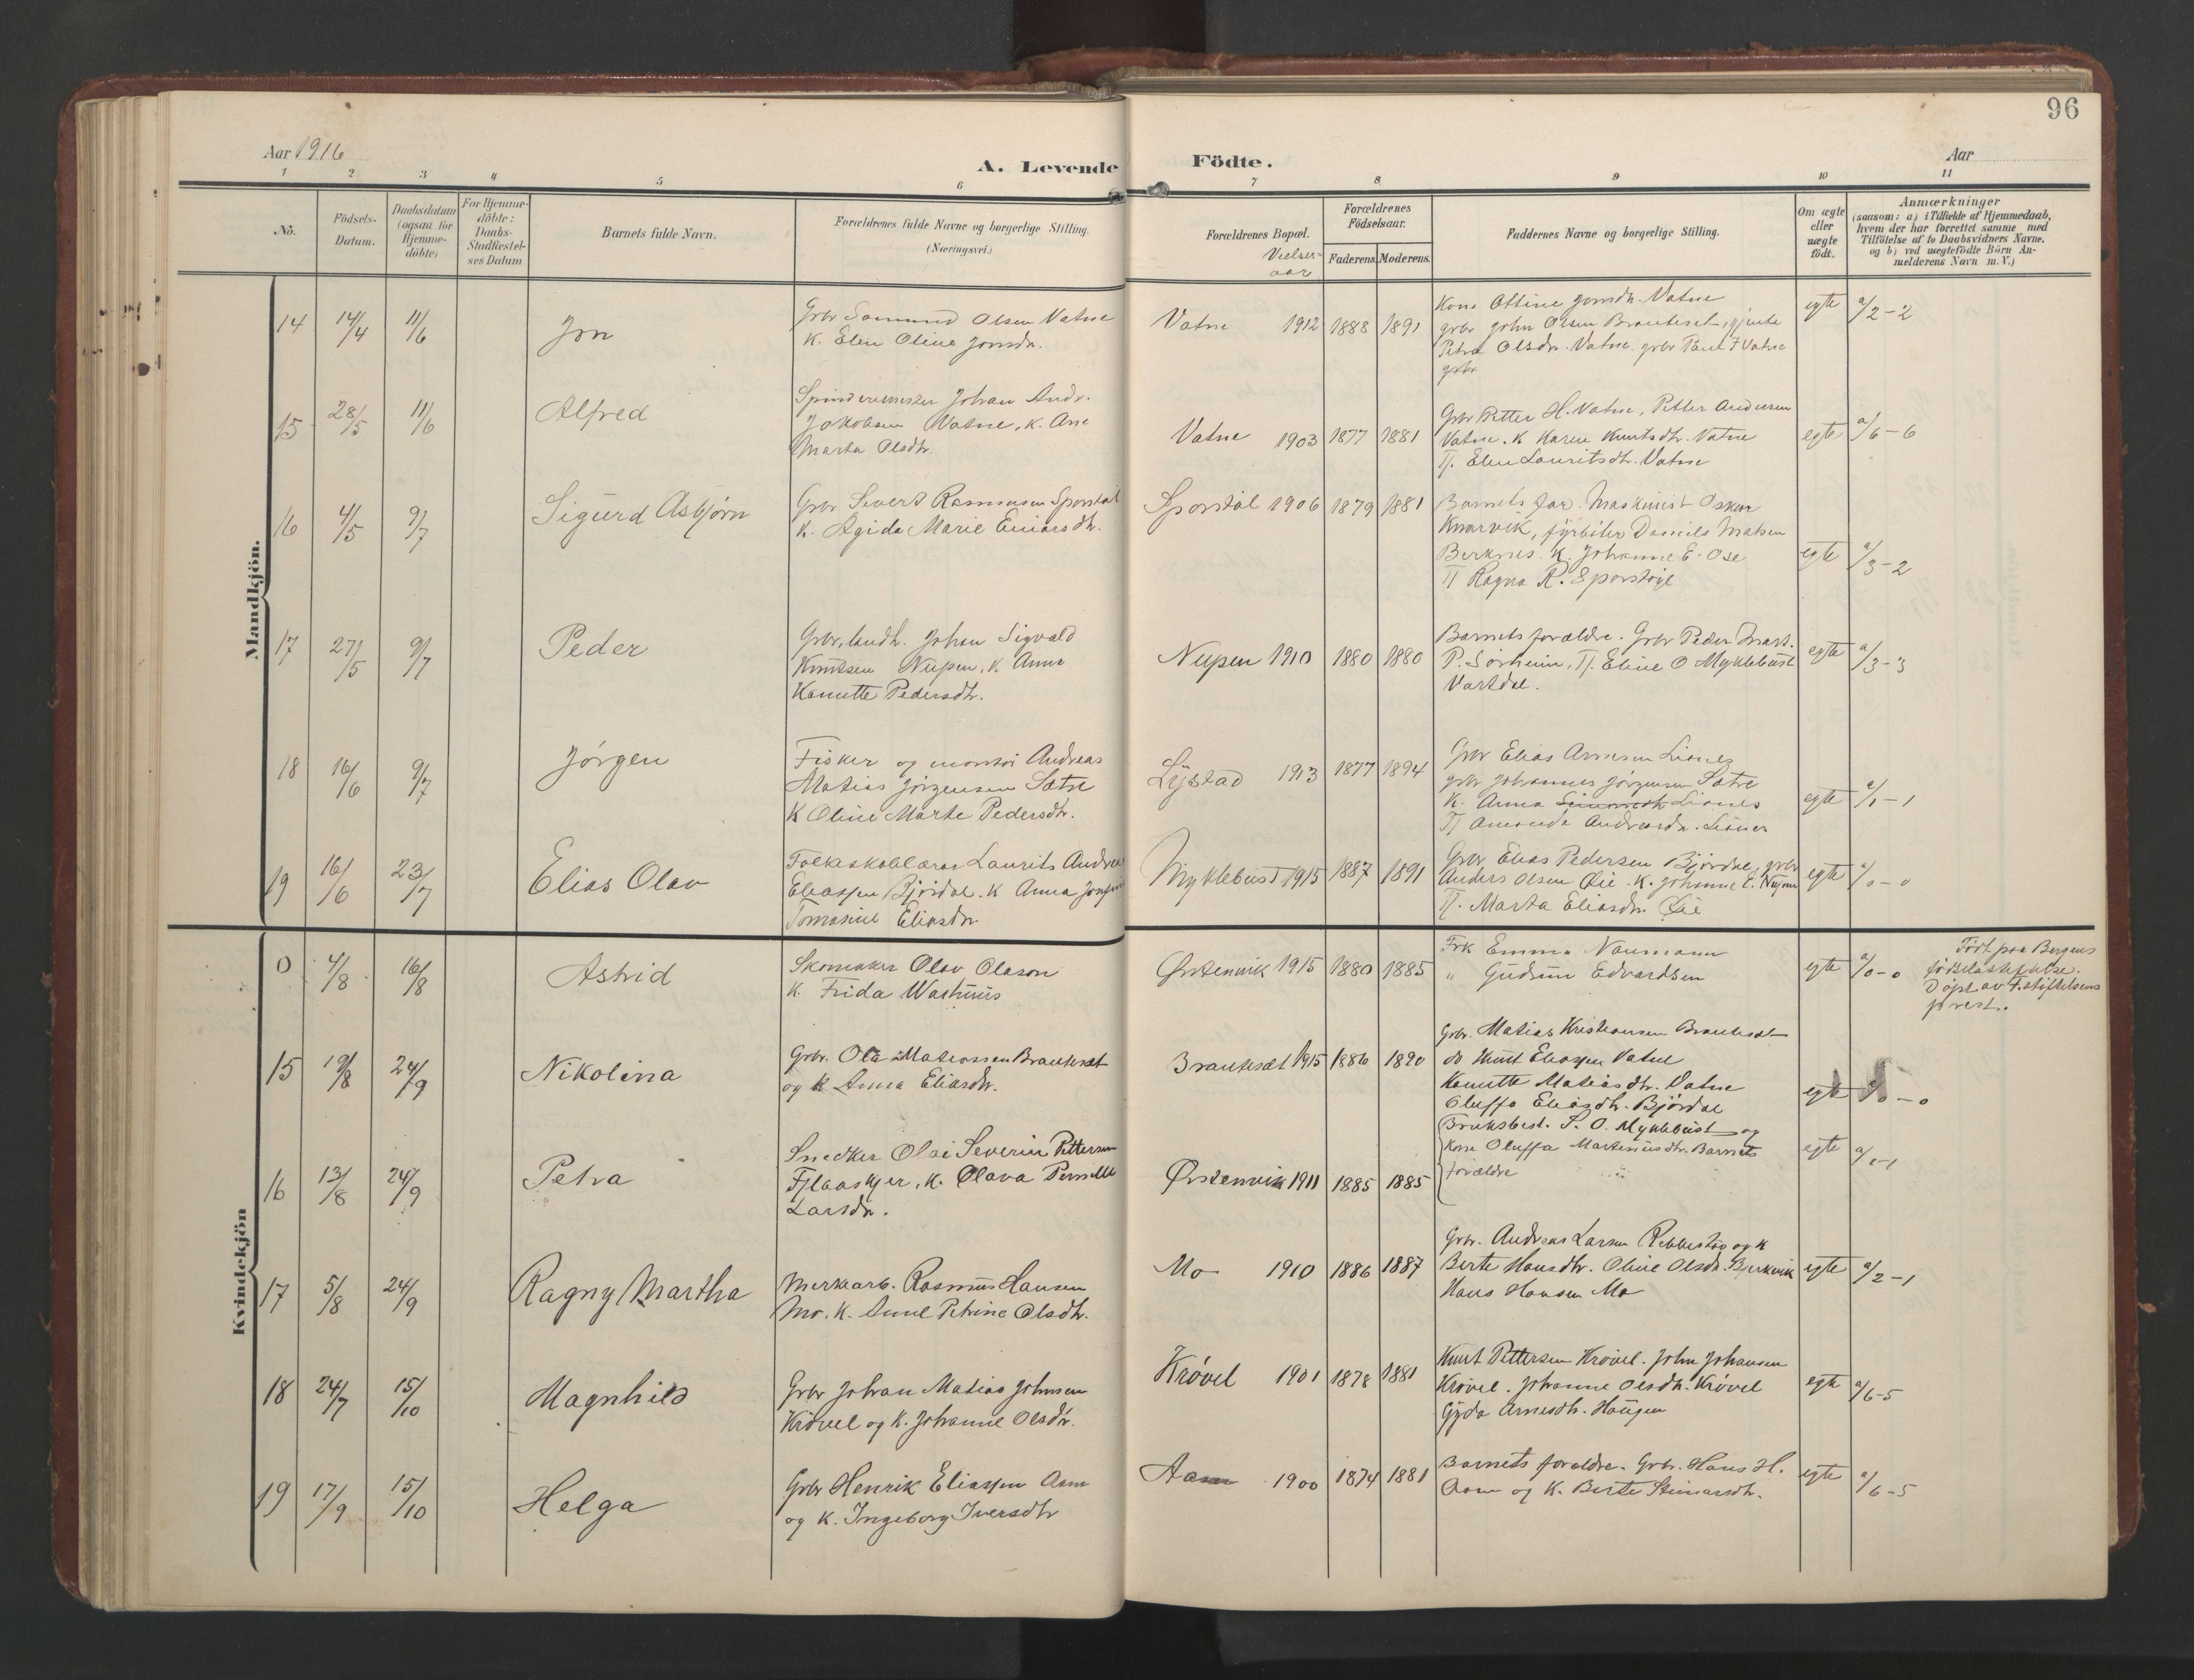 96
Aar 1916
A. Levende Födte.
Aar
1 2 3 4 5 6 7 8 9 10 11
No.
Födsels-
Datum.
Daabsdatum
(ogsaa for
Hjemme-
döbte)
For Hjemme-
döbte:
Daabs-
Stadfæstel-
ses Datum
Barnets fulde Navn.
Forældrenes fulde Navne og borgerlige Stilling.
(Næringsvei.)
Forældrenes Bopæl.
Vielses-
aar
Forældrenes
Födselsaar.
Faderens. Moderens.
Faddernes Navne og borgerlige Stilling.
Om ægte
eller
uægte
födt.
Anmærkninger
(saasom: a) i Tilfælde af Hjemmedaab,
hvem der har forrettet samme, med
Tilföielse af to Daabsvidners Navne,
og b) ved uægtefödte Börn An-
melderens Navn m. V.)
Mandkjön.
14 14/4 11/6 Jon
Grbr Olsen Vatne
K. Elen Oline Jonsdr.
Vatne 1912 1888 1891
Kone Ottine Jonsdr. Vatne
grbr John Olsen Brauteset, gjente
Petra Olsdr. Vatne grbr Paul Vatne
grbr
egte a/2-2
15 28/5 11/6 Alfred
Spinderimester Johan Andr.
Jakobsen Vatne, K. Ane
Marta Olsdtr.
Vatne 1903 1877 1881
Grbr Petter H. Vatne, Petter Andersen
Vatne. K Karen Knutsdtr. Vatne
Pj. Elen Lauritsdtr. Vatne
egte a/6-6
16 4/5 9/7 Sigurd Asbjørn
Grbr Severt Rasmusen Sporstøl
K. Agide Marie Einarsdtr.
Sporstøl 1906 1879 1881
Barnets far. Maskinist Oskar
Knarvik, fyrbøter Daniels Matsen
Berknes. K. Johanne E. Ose
Pj Ragna R. Sporstøyl
egte a/3-2
17 27/5 9/7 Peder
Grbr, landh. Johan Sigvald
Knutsen Nupen, K. Anna
Kanutte Pedersdtr.
Nupen 1910 1880 1880
Barnets forældre. Grbr Peder Mart.
P. Sørheim, Pj. Eline O Myklebust
Vartdal.
egte a/3-3
18 16/6 9/7 Jørgen
Fisker og montør Andreas
Matias Jørgensen Sætre
K Oline Marte Pedersdtr.
Lystad 1913 1877 1894
Grbr Elias Arnesen Lianes
grbr Johannes Jørgensen Sætre
K. Anna Lianes
Pj Amanda Andreasdr. Lianes
egte a/1-1
19 16/6 23/7 Elias Olav
Folkeskolelærer Laurits Andreas
Eliassen Bjørdal. K Anna
Tomasine Eliasdr.
Myklebust 1915 1887 1891
Grbr Elias Pedersen Bjørdal, grbr
Anders Olsen Øie. K. Johanne E. Nupen
Pj. Marta Eliasdr. Øie
egte a/0-0
Kvindekjön
0 4/8 16/8 Astrid
Skomaker Olav Olason
K. Frida
Ørstenvik 1915 1880 1885
Frk Emma Naumann
" Gudrun Edvardsen
egte a/0-0
Født paa Bergens
fødselsstiftelse.
Døpt av F.stiftelsens
prest.
15 19/8 24/9 Nikolina
Grbr. Ola Matiassen Brautesæt
og K Anna Eliasdtr.
Brautesæt 1915 1886 1890
Grbr. Matias Kristiansen Brautesæt
do Knut Eliassen Vatne
Kanutte Matiasdtr. Vatne
Oluffa Eliasdtr. Bjørdal
egte a/0-0
16 13/8 24/9 Petra
Snedker Olai Severin Pettersen
Flaaskjer, K. Olava Pernille
Larsdr.
Ørstenvik 1911 1885 1885
Bruksbest. S. O. Myklebust og
Kone Oluffa Martinusdtr. Barnets
forældre
egte a/1-1
17 5/8 24/9 Ragny Martha
Merkarb. Rasmus Hansen
Mo. K. Anne Petrine Olsdtr.
Mo 1910 1886 1887
Grbr. Andreas Larsen Rebbestad og K
Berte Hansdtr. Oline Olsdr. Bjerkvik
Hans Hansen Mo
egte a/2-1
18 24/7 15/10 Magnhild
Grbr Johan Matias Johnsen
Krøvel og K. Johanne Olsdtr.
Krøvel 1901 1878 1881
Knut Pettersen Krøvel. John Johansen
Krøvel. Johanne Olsdtr. Krøvel
Gyda Arnesdtr. Haugen
egte a/6-5
19 17/9 15/10 Helga
Grbr Henrik Eliassen Aam
og K. Ingeborg Iversdtr
Aam 1900 1874 1881
Barnets forældre. Grbr. Hans H.
Aam og K. Berte Steinarsdtr.
egte a/6-5